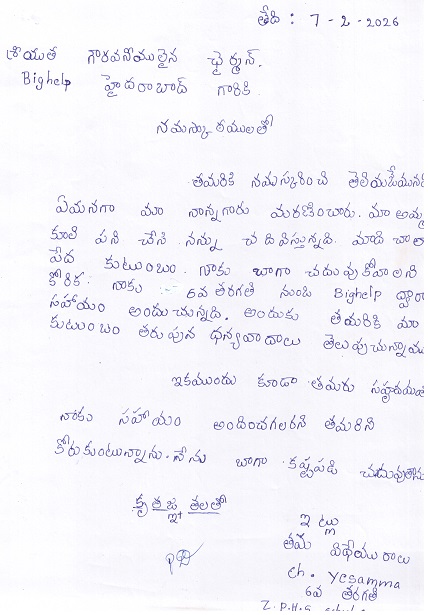 తేది : 7 - 2 - 2026
శ్రీయుత గౌరవనీయులైన ఛైర్మన్.
Bighelp హైదరాబాద్ గారికి
నమస్కారములతో
తమరికి నమస్కరించి తెలియజేయునది
ఏమనగా మా నాన్నగారు మరణించారు. మా అమ్మ
కూలి పని చేసి నన్ను చదివిస్తున్నది. మాది చాలా
పేద కుటుంబం. నాకు బాగా చదువుకోవాలని
కోరిక. నాకు 6వ తరగతి నుండి Bighelp ద్వారా
సహాయం అందుచున్నది. అందుకు తమరికి మా
కుటుంబం తరుపున ధన్యవాదాలు తెలుపుచున్నాము
ఇకముందు కూడా తమరు
నాకు సహాయం అందించగలరని తమరిని
కోరుకుంటున్నాను. నేను బాగా కష్టపడి చదువుతాను
కృతజ్ఞతలతో
ఇట్లు
తమ విధేయురాలు
ch. Yesamma
6వ తరగతి
Z.P.H.S